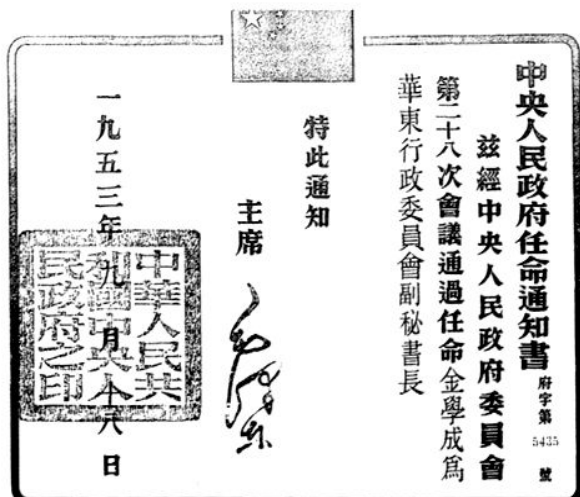 中央人民政府任命通知書
府字第5435號
茲經中央人民政府委員會
第二十八次會議通過任命金學成爲
華東行政委員會副秘書長
特此通知
主席
毛澤東
一九五三年九月十八日
中華人民共
和國中央人
民政府之印